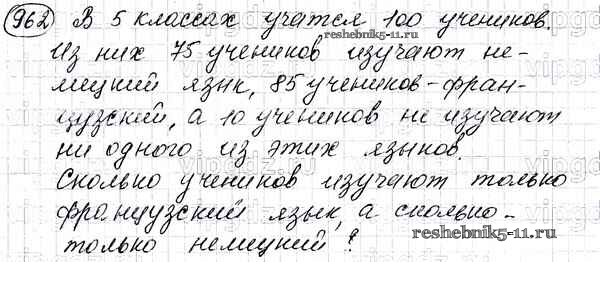 962 В 5 классах учатся 100 учеников.
reshebnik5-11.ru
Из них 75 учеников изучают не-
мецкий язык, 85 учеников - фран-
цузский, а 10 учеников не изучают
ни одного из этих языков.
Сколько учеников изучают только
французский язык, а сколько -
только немецкий?
reshebnik5-11.ru